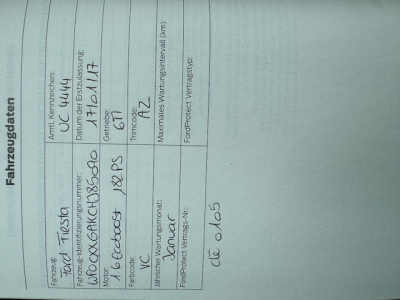 Fahrzeugdaten
Fahrzeug: Amtl. Kennzeichen:
Ford Fiesta UC 4444
Fahrzeug-Identifizierungsnummer: Datum der Erstzulassung:
17/01/17
Motor: Getriebe:
1.6 Ecoboost 182PS 6TT
Farbcode: Trimcode:
VC AZ
Jährlicher Wartungsmonat: Maximales Wartungsintervall (km):
Januar
FordProtect Vertrags-Nr.: FordProtect Vertragstyp:
0105